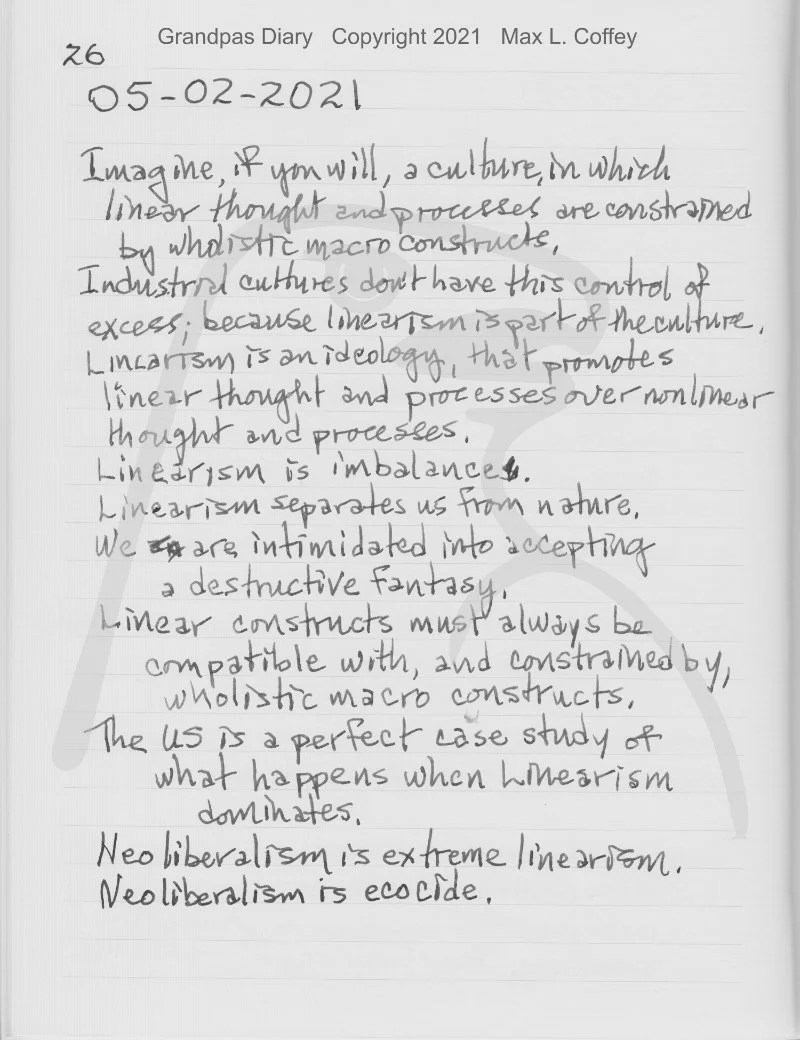 Grandpas Diary Copyright 2021 Max L. Coffey
26
05-02-2021
Imagine, if you will, a culture, in which
linear thought and processes are constrained
by wholistic macro constructs.
Industrial cultures don't have this control of
excess; because linearism is part of the culture.
Linearism is an ideology, that promotes
linear thought and processes over nonlinear
thought and processes.
Linearism is imbalance.
Linearism separates us from nature.
We are intimidated into accepting
a destructive fantasy.
Linear constructs must always be
compatible with, and constrained by,
wholistic macro constructs.
The US is a perfect case study of
what happens when Linearism
dominates.
Neoliberalism is extreme linearism.
Neoliberalism is ecocide.